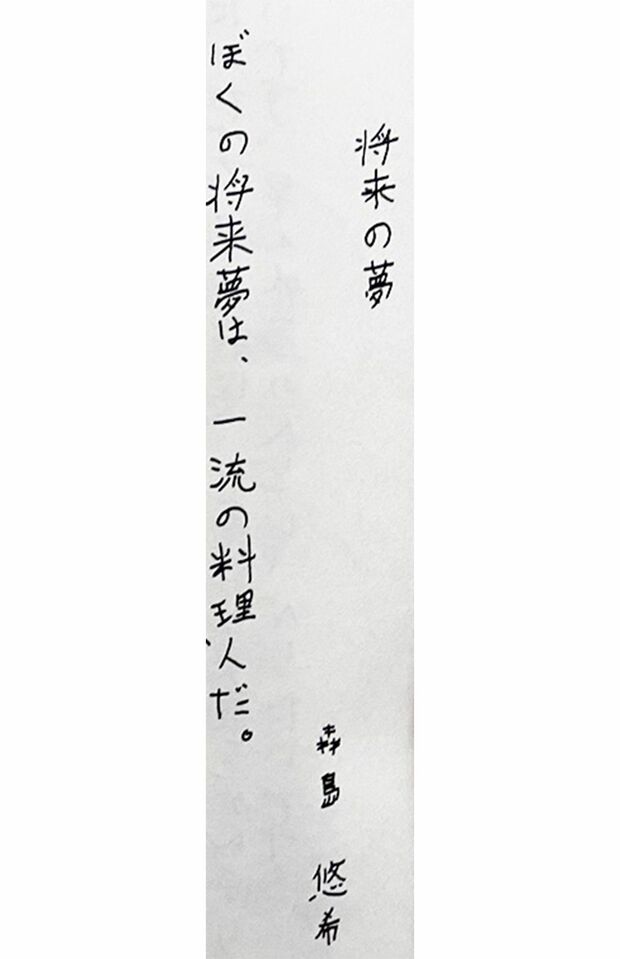 将来の夢
森島 悠希
ぼくの将来夢は、一流の料理人だ。